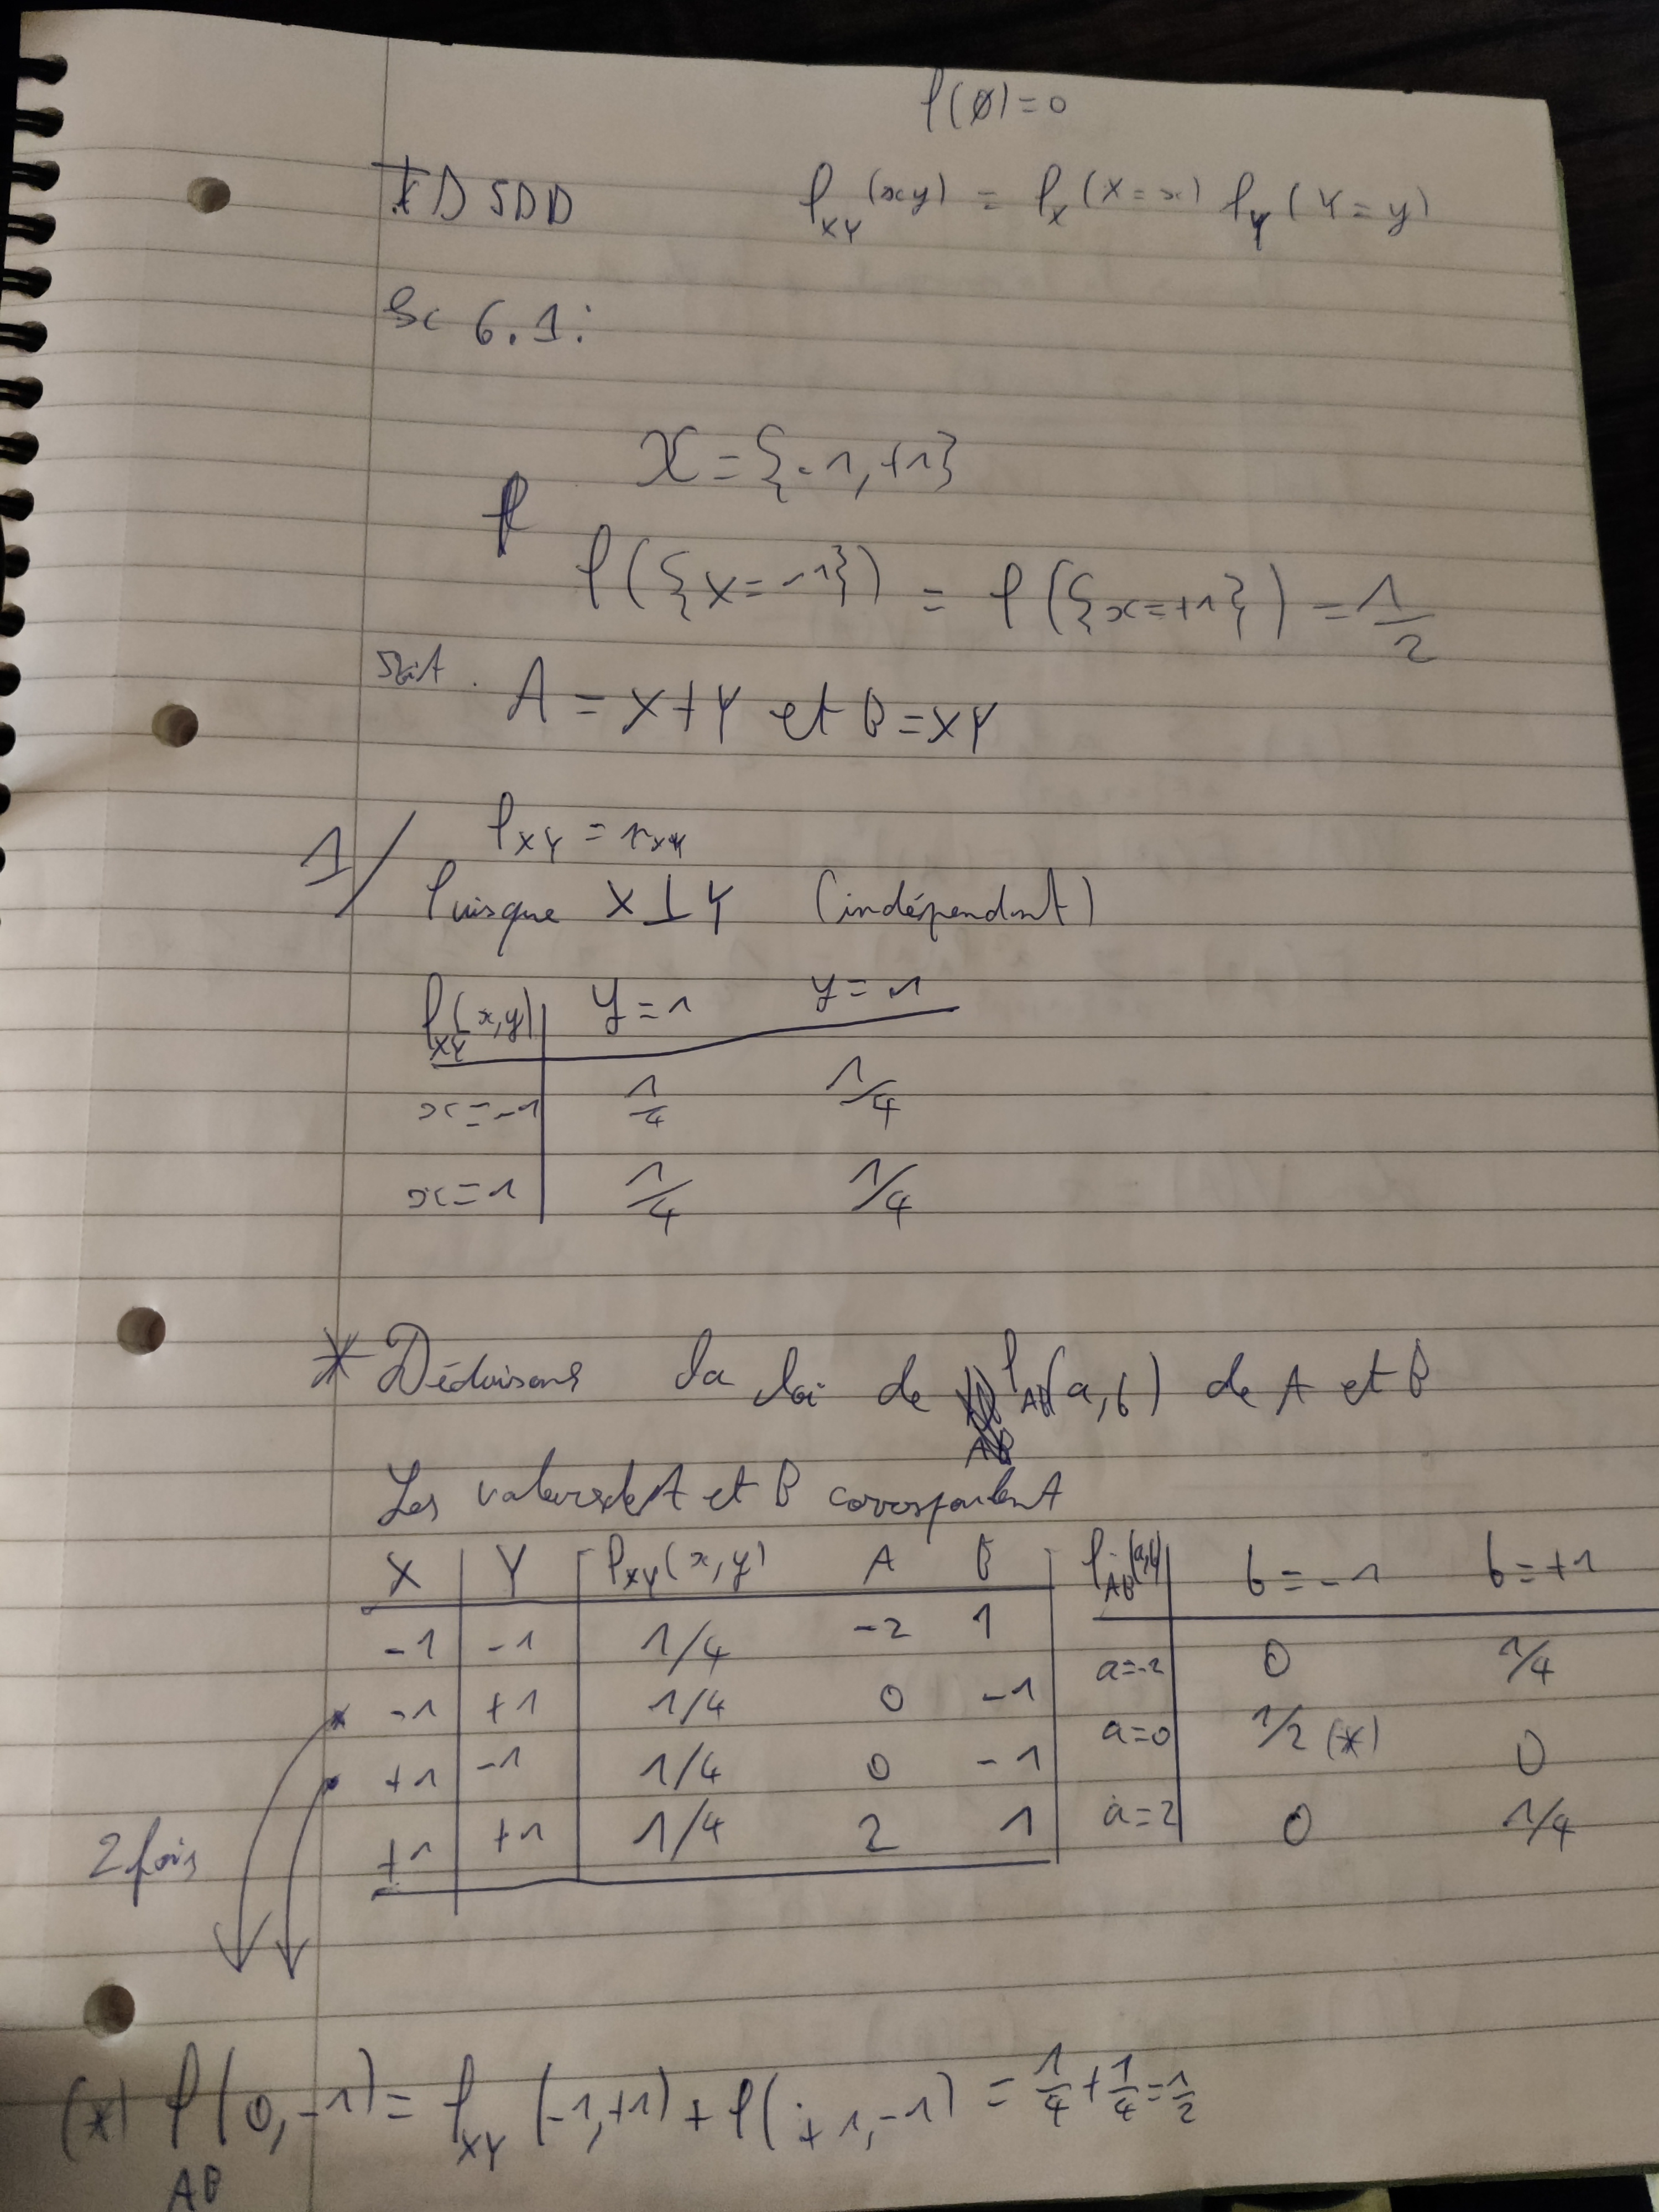 P(∅)=0
TD SDD
P_XY(x,y) = P_X(X=x) P_Y(Y=y)
Ex 6.1:
X={-1,+1}
P({X=-1}) = P({x=+1}) = 1/2
Soit A = X+Y et B=XY
1/
Puisque X⊥Y (indépendant)
P_XY(x,y) | y=1 y=-1
x=-1 | 1/4 1/4
x=1 | 1/4 1/4
* Déduisons la loi de P_AB(a,b) de A et B
Les valeurs de A et B correspondent
X | Y | P_XY(x,y) A B | P_AB(a,b) | b=-1 b=+1
-1 | -1 | 1/4 -2 1 | a=-2 | 0 1/4
-1 | +1 | 1/4 0 -1 | a=0 | 1/2 (*) 0
+1 | -1 | 1/4 0 -1
+1 | +1 | 1/4 2 1 | a=2 | 0 1/4
2 fois
(*) P_AB(0,-1) = P_XY(-1,+1) + P(+1,-1) = 1/4 + 1/4 = 1/2